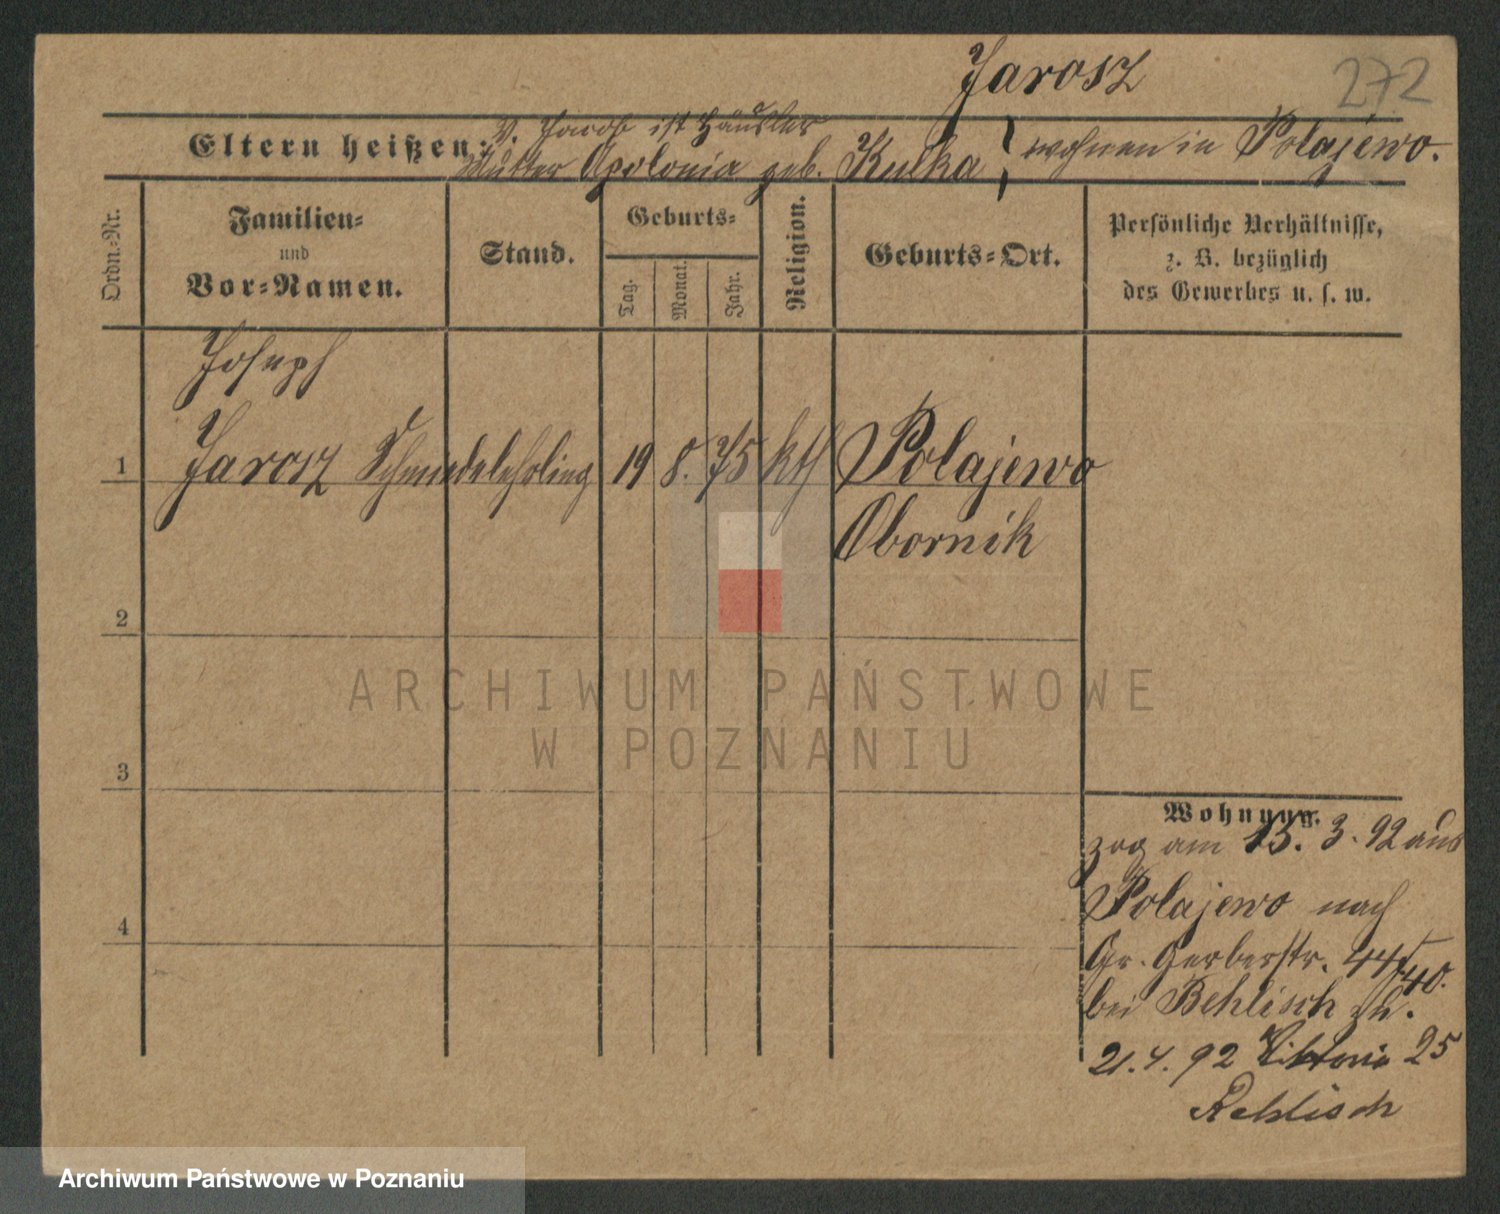 Jarosz
272
V. Jacob ist Häusler
Eltern heißen: Mutter Apolonia geb. Kulka } wohnen in Polajewo.
Ordn.-Nr.
Familien-
und
Vor-Namen.
Stand.
Geburts-
Tag.
Monat.
Jahr.
Religion.
Geburts-Ort.
Persönliche Verhältnisse,
z. B. bezüglich
des Gewerbes u. s. w.
Joseph
1 Jarosz Schmiedelehrling 19 8. 75 kth Polajewo
Obornik
2
ARCHIWUM PAŃSTWOWE
W POZNANIU
3
Wohnung.
zog am 15. 3. 92 aus
Polajewo nach
4
Gr. Gerberstr. 44
40.
bei Behlisch
21. 4. 92 Viktoria 25
Rehlisch
Archiwum Państwowe w Poznaniu